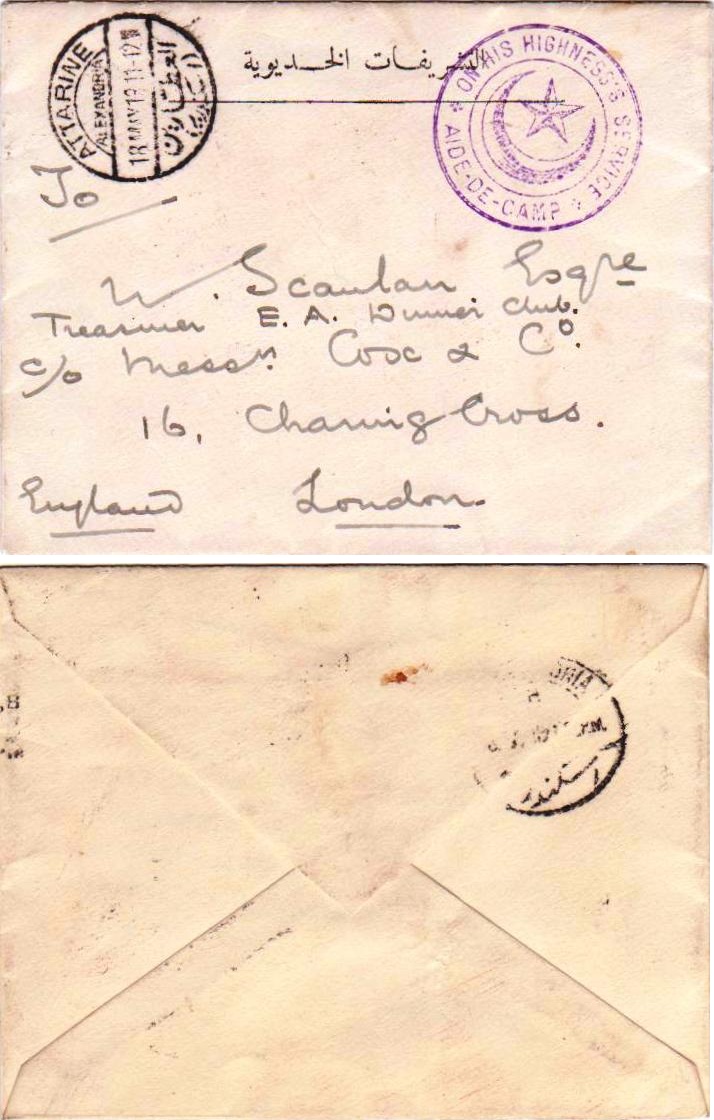 ATTARINE
ALEXANDRIA
18 MAY 19 11-12
العطارين
التشريفات الخديوية
ON HIS HIGHNESS'S SERVICE
AIDE-DE-CAMP
To
W. Scanlan Esqre
Treasurer E. A. Dinner Club.
c/o Messrs. Cox & Co.
16, Charing Cross.
England London.